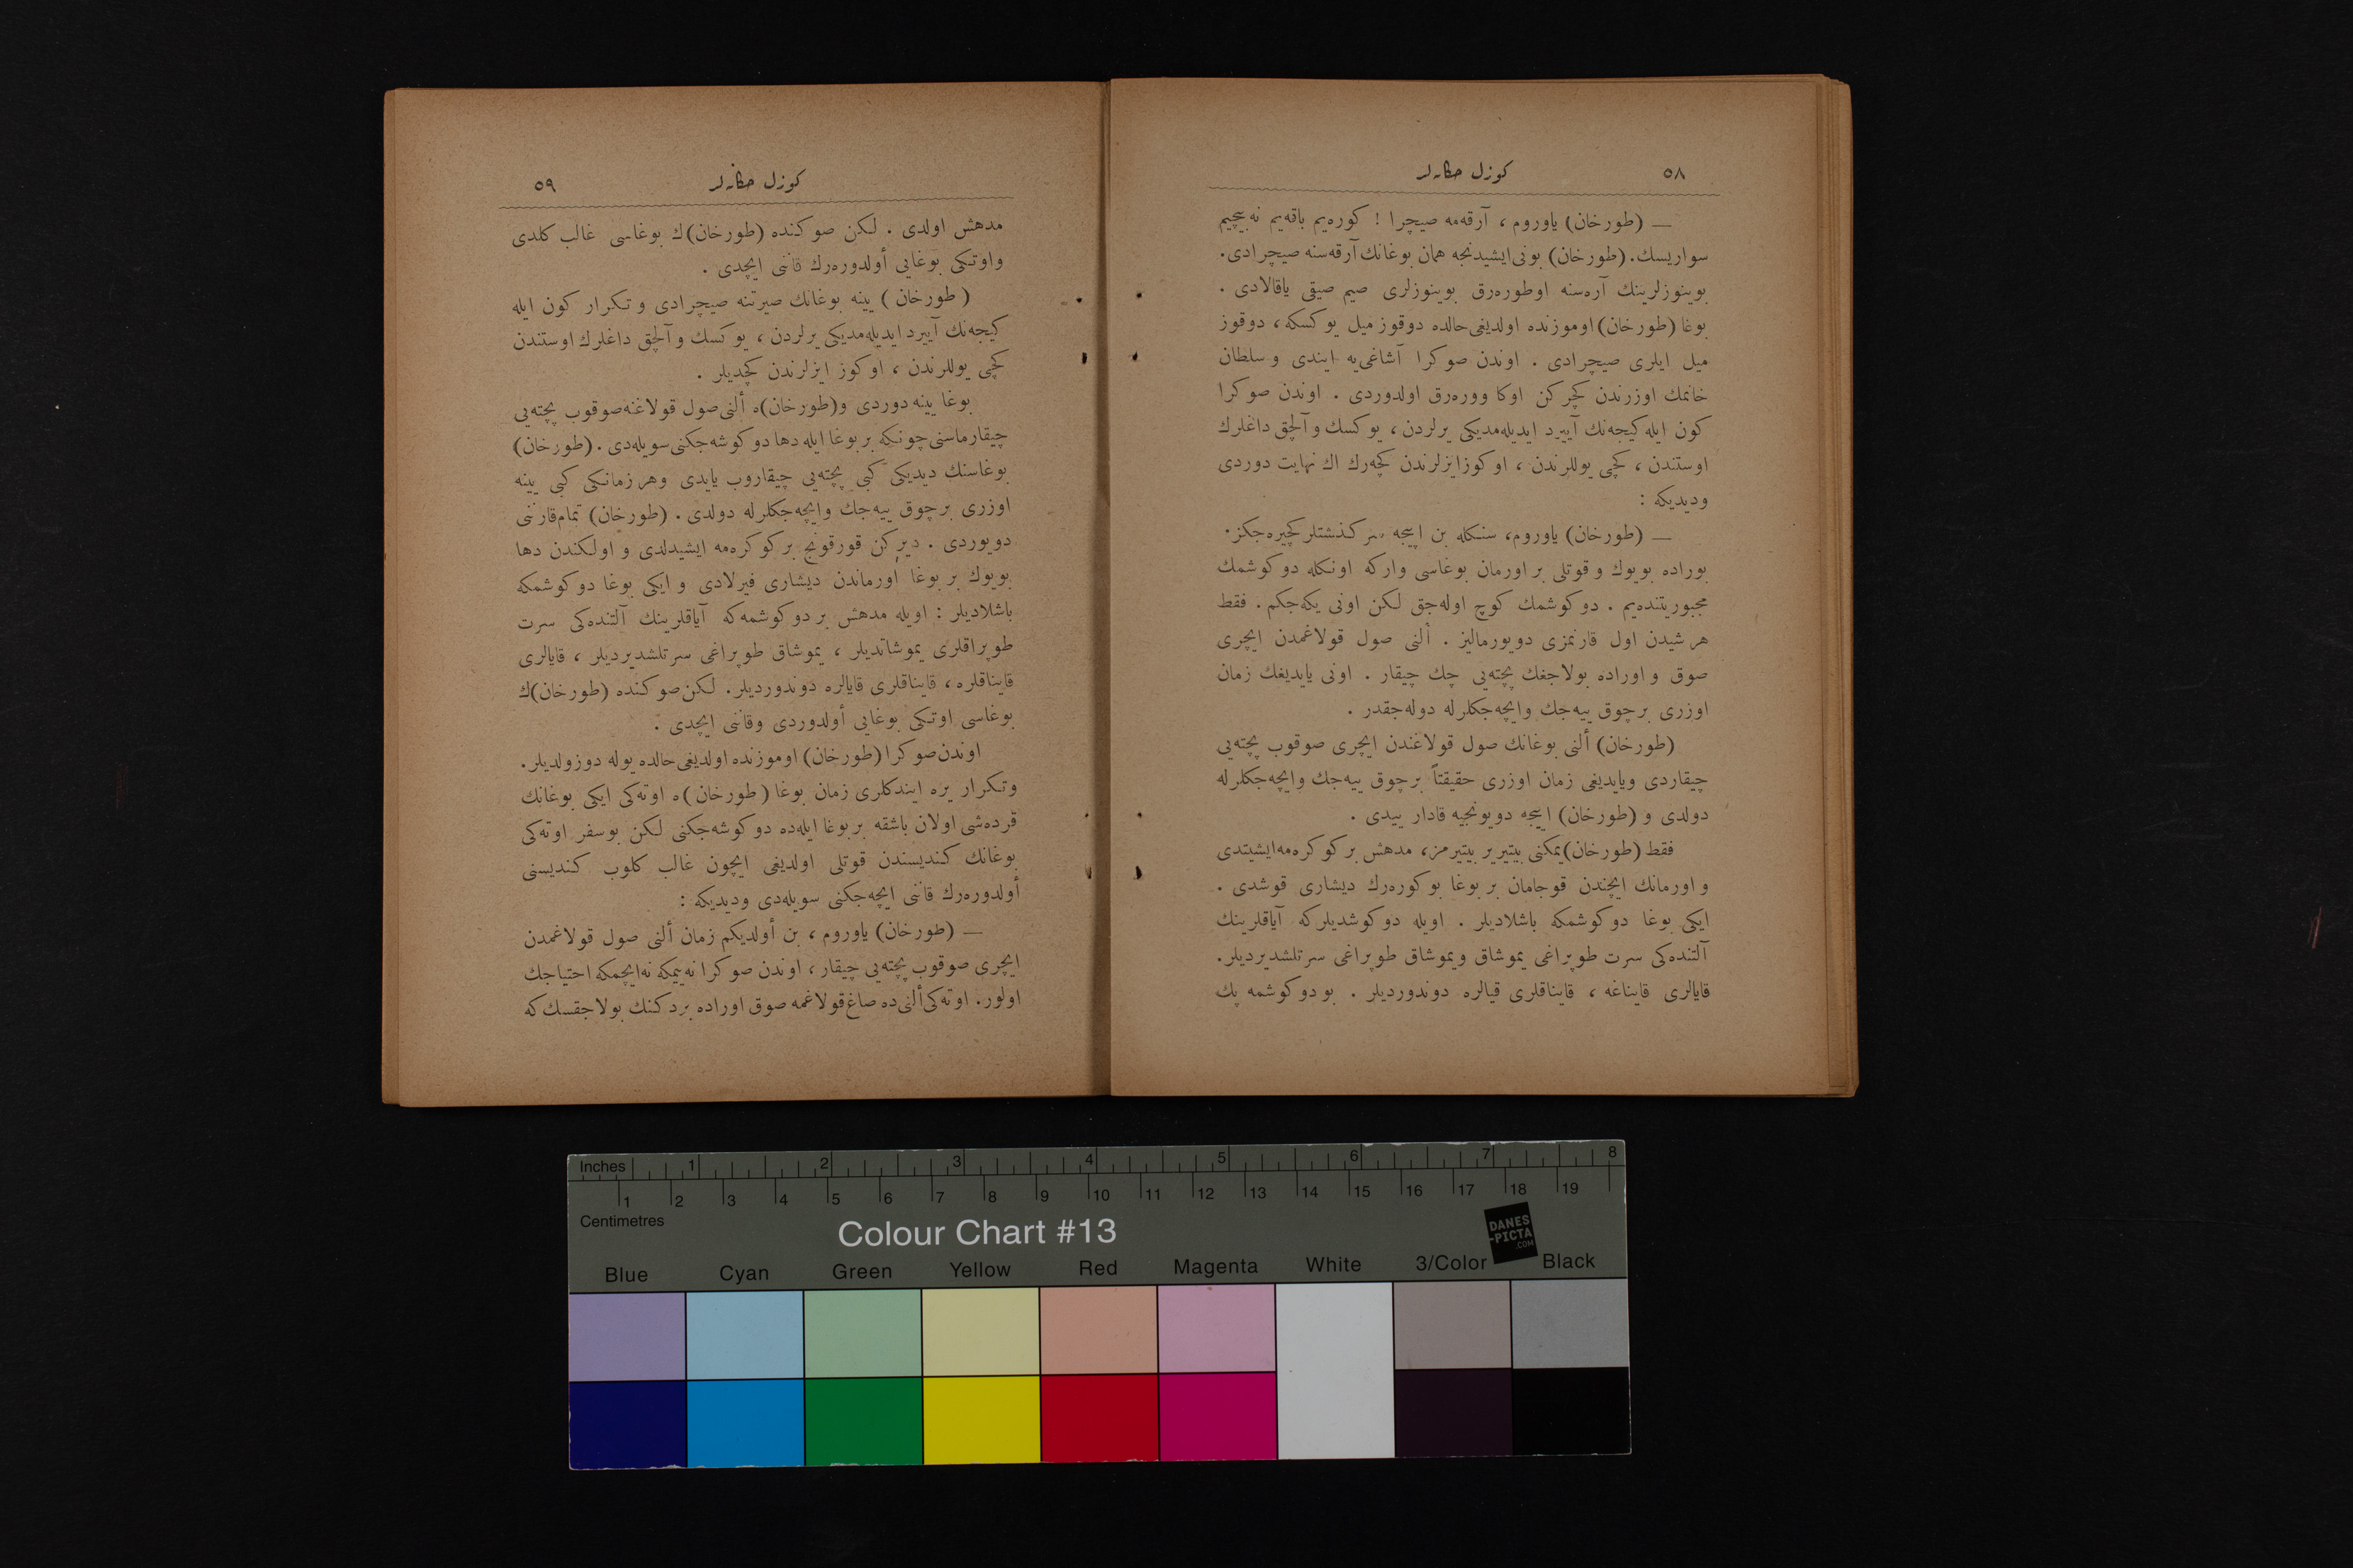 ٥٨
كوزل حكايه‌لر
— (طورخان) ياوروم ، آرقه‌مه صيچرا ! كوره‌يم باقه‌يم نه بيچيم
سواريسك. (طورخان) بونى ايشيدنجه همان بوغانك آرقه‌سنه صيچرادى.
بوينوزلرينك آره‌سنه اوطوره‌رق بوينوزلرى صيم صيقى ياقالادى .
بوغا (طورخان) اوموزنده اولديغى حالده دوقوز ميل يوكسكه ، دوقوز
ميل ايلرى صيچرادى . اوندن صوكرا آشاغى‌يه ايندى و سلطان
خانمك اوزرندن كچركن اوكا ووره‌رق اولدوردى . اوندن صوكرا
كون ايله كيجه‌نك آييرد ايديله‌مديكى يرلردن ، يوكسك و آلچق داغلرك
اوستندن ، كچى يوللرندن ، اوكوز ايزلرندن كچه‌رك اك نهايت دوردى
وديديكه :
— (طورخان) ياوروم، سنكله بن اييجه سر كذشتلر كچيره‌جكز.
بوراده بويوك و قوتلى بر اورمان بوغاسى واركه اونكله دوكوشمك
مجبوريتنده‌يم . دوكوشمك كوچ اوله‌جق لكن اونى يكه‌جكم . فقط
هر شيدن اول قارنمزى دويورماليز . ألنى صول قولاغمدن ايچرى
صوق و اوراده بولاجغك پچته‌يى چك چيقار . اونى يايديغك زمان
اوزرى برچوق ييه‌جك وايچه‌جكلرله دوله‌جقدر .
(طورخان) ألنى بوغانك صول قولاغندن ايچرى صوقوب پچته‌يى
چيقاردى ويايديغى زمان اوزرى حقيقتاً برچوق ييه‌جك وايچه‌جكلرله
دولدى و (طورخان) اييجه دويونجيه قادار ييدى .
فقط (طورخان) يمكنى بيتيرير بيتيرمز، مدهش بر كوكره‌مه ايشيتدى
و اورمانك ايچندن قوجامان بر بوغا بوكوره‌رك ديشارى قوشدى .
ايكى بوغا دوكوشمكه باشلاديلر . اويله دوكوشديلركه آياقلرينك
آلتنده‌كى سرت طوپراغى يموشاق ويموشاق طوپراغى سرتلشديرديلر.
قايالرى قايناغه ، قايناقلرى قيالره دوندورديلر . بو دوكوشمه پك
٥٩
كوزل حكايه‌لر
مدهش اولدى . لكن صوكنده (طورخان)ك بوغاسى غالب كلدى
واوتكى بوغايى أولدوره‌رك قاننى ايچدى .
(طورخان) يينه بوغانك صيرتنه صيچرادى و تكرار كون ايله
كيجه‌نك آييرد ايديله‌مديكى يرلردن ، يوكسك و آلچق داغلرك اوستندن
كچى يوللرندن ، اوكوز ايزلرندن كچديلر .
بوغا يينه دوردى و(طورخان)ه ألنى صول قولاغنه صوقوب پچته‌يى
چيقارماسنى چونكه بر بوغا ايله دها دوكوشه‌جكنى سويله‌دى . (طورخان)
بوغاسنك ديديكى كبى پچته‌يى چيقاروب يايدى وهر زمانكى كبى يينه
اوزرى برچوق ييه‌جك وايچه‌جكلرله دولدى . (طورخان) تمام قارننى
دويوردى . ديركن قورقونج بر كوكره‌مه ايشيدلدى و اولكندن دها
بويوك بر بوغا اورماندن ديشارى فيرلادى و ايكى بوغا دوكوشمكه
باشلاديلر : اويله مدهش بر دوكوشمه‌كه آياقلرينك آلتنده‌كى سرت
طوپراقلرى يموشاتديلر ، يموشاق طوپراغى سرتلشديرديلر ، قايالرى
قايناقلره ، قايناقلرى قايالره دوندورديلر. لكن صوكنده (طورخان)ك
بوغاسى اوتكى بوغايى أولدوردى وقاننى ايچدى .
اوندن صوكرا (طورخان) اوموزنده اولديغى حالده يوله دوزولديلر.
وتكرار يره ايندكلرى زمان بوغا (طورخان)ه اوته‌كى ايكى بوغانك
قرده‌شى اولان باشقه بر بوغا ايله‌ده دوكوشه‌جكنى لكن بوسفر اوته‌كى
بوغانك كنديسندن قوتلى اولديغى ايچون غالب كلوب كنديسنى
أولدوره‌رك قاننى ايچه‌جكنى سويله‌دى وديديكه :
— (طورخان) ياوروم ، بن أولديكم زمان ألنى صول قولاغمدن
ايچرى صوقوب پچته‌يى چيقار ، اوندن صوكرا نه ييمكه نه ايچمكه احتياجك
اولور. اوته‌كى ألنى‌ده صاغ قولاغمه صوق اوراده بردكنك بولاجقسك كه
Inches 1 2 3 4 5 6 7 8
1 2 3 4 5 6 7 8 9 10 11 12 13 14 15 16 17 18 19
Centimetres
Colour Chart #13
DANES
-PICTA
.COM
Blue Cyan Green Yellow Red Magenta White 3/Color Black